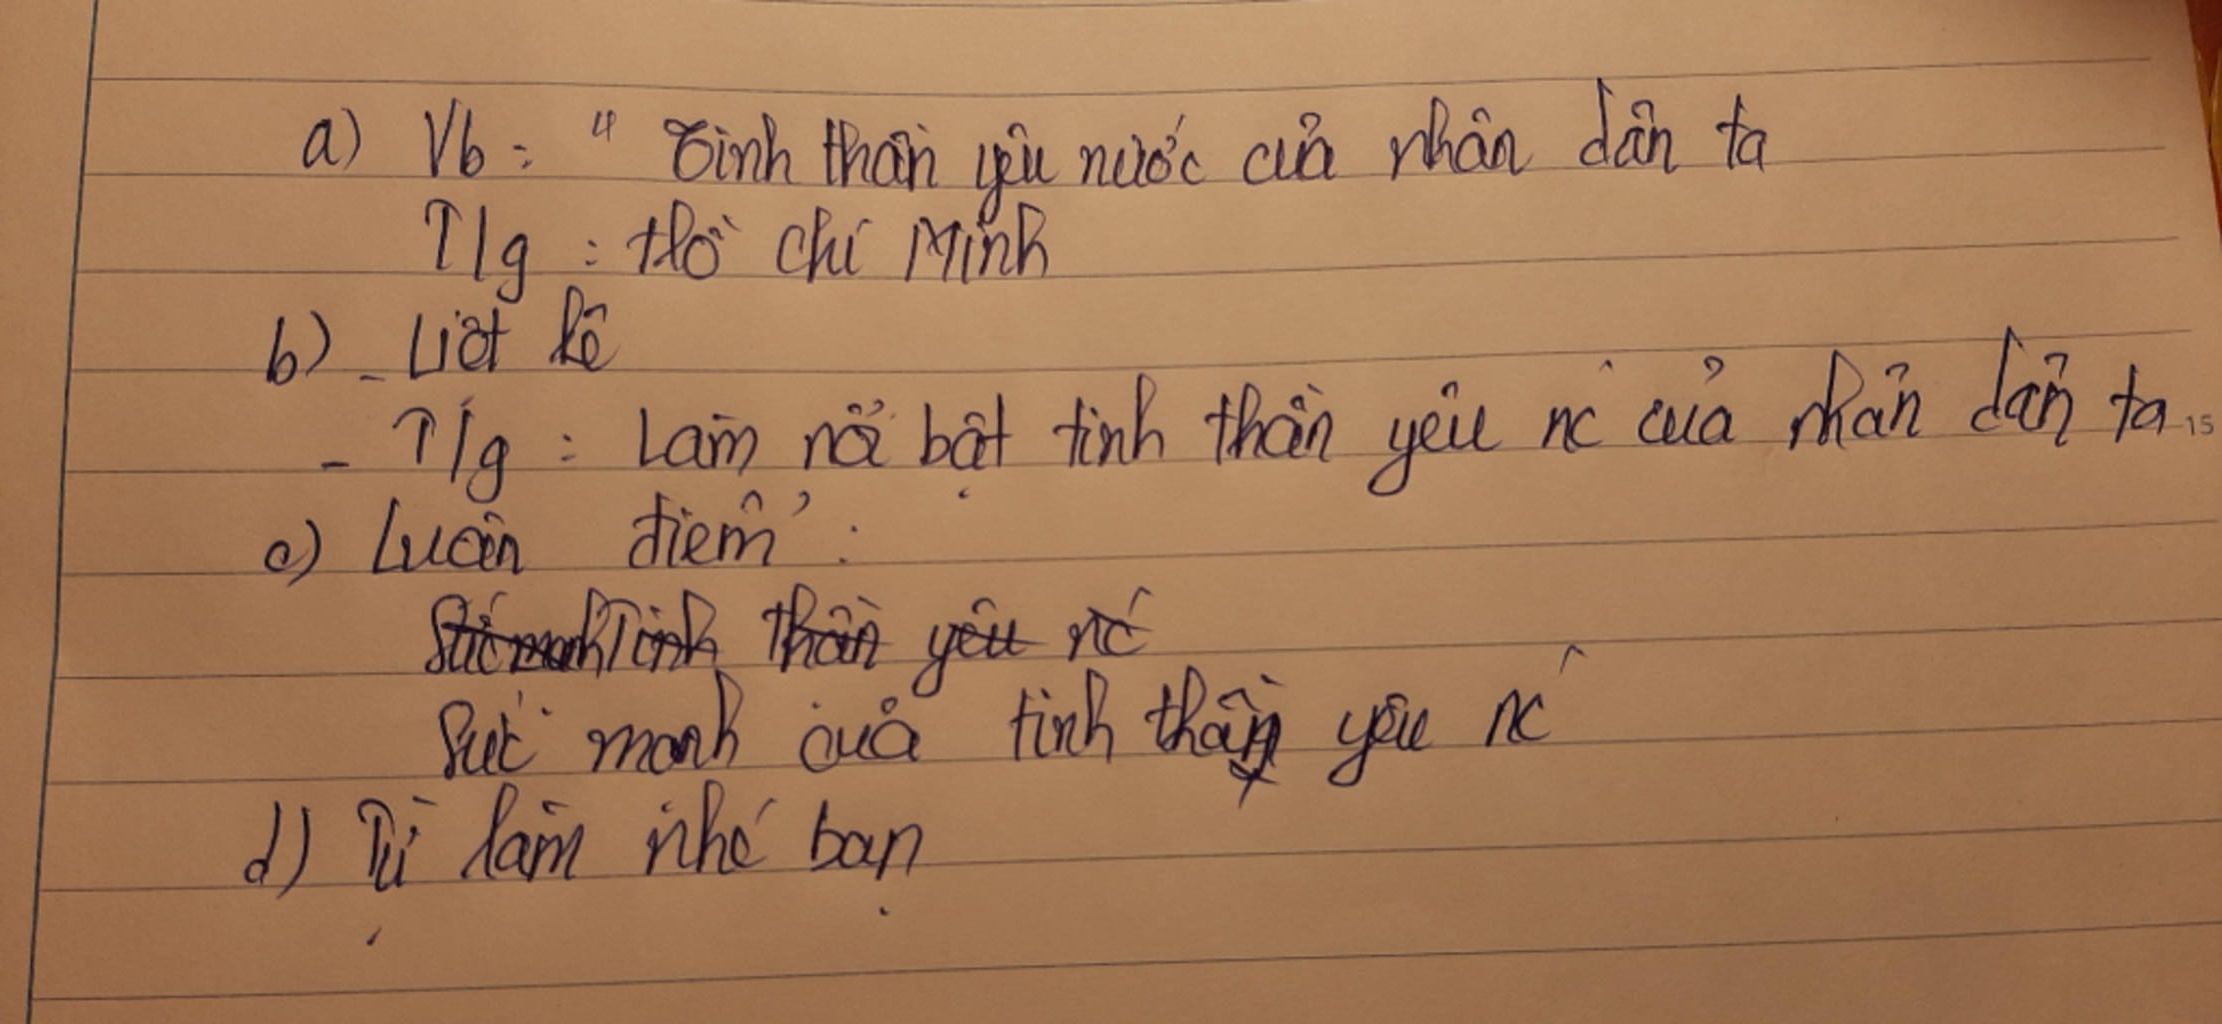 a) Vb : " Tinh thần yêu nước của nhân dân ta
T/g : Hồ Chí Minh
b) - Liệt kê
- T/g : Làm nổi bật tinh thần yêu nc của nhân dân ta.
15
c) Luận điểm :
Sức mạnh Tinh thần yêu nc
Sức mạnh của tinh thần yêu nc
d) Tự làm nhé bạn